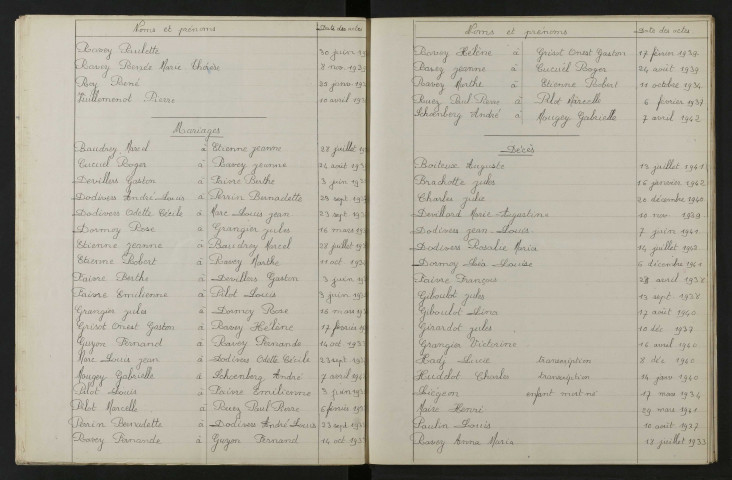 Noms et prénoms Date des actes
Ravey Paulette 30 juin 19
Ravey Renée Marie Thérèse 8 nov. 19
Roy René janv. 19
Vuillemenot Pierre 10 avril 19
Mariages
Baudrey Marcel à Etienne Jeanne 28 juillet 19
Cucuel Roger à Ravey Jeanne 24 août 193
Devillers Gaston à Faivre Berthe 3 juin 19
Dodivers André Louis à Perrin Bernadette 23 sept 19
Dodivers Odette Cécile à Marc Louis Jean 23 sept 19
Dormoy Rose à Grangier Jules 16 mars 19
Etienne Jeanne à Baudrey Marcel 28 juillet 19
Etienne Robert à Ravey Marthe 11 oct 193
Faivre Berthe à Devillers Gaston 3 juin 19
Faivre Emilienne à Pilot Louis 3 juin 19
Grangier Jules à Dormoy Rose 16 mars 19
Grisot Ernest Gaston à Ravey Hélène 17 février 19
Guyon Fernand à Ravey Fernande 14 oct 193
Marc Louis Jean à Dodivers Odette Cécile 23 sept 19
Mougey Gabrielle à Schoenberg André 7 avril 194
Pilot Louis à Faivre Emilienne 3 juin 19
Pilot Marcelle à Ravey Paul Pierre 6 février 19
Perrin Bernadette à Dodivers André Louis 23 sept 19
Ravey Fernande à Guyon Fernand 14 oct 193
Noms et prénoms Date des actes
Ravey Hélène à Grisot Ernest Gaston 17 février 1939
Ravey Jeanne à Cucuel Roger 24 août 1939
Ravey Marthe à Etienne Robert 11 octobre 1934
Ravey Paul Pierre à Pilot Marcelle 6 février 1937
Schoenberg André à Mougey Gabrielle 7 avril 1942
Décès
Boiteux Auguste 13 juillet 1941
Brachotte Jules 16 janvier 1942
Charles Julie 20 décembre 1940
Devillard Marie Augustine 10 nov 1939
Dodivers Jean Louis 7 juin 1941
Dodivers Rosalie Maria 14 juillet 193
Dormoy Léa Louise 6 décembre 1941
Faivre François 28 avril 1938
Giboulot Jules 13 sept 1938
Giboulot Lina 17 août 1940
Girardot Jules 10 déc 1937
Grangier Victorine 16 avril 1940
Hady Lucie transcription 8 déc 1940
Huddot Charles transcription 14 janv 1940
Liégeon enfant mort-né 17 mars 1934
Maire Henri 29 mars 1941
Paulin Louis 10 août 1937
Ravey Anna Maria 13 juillet 1933